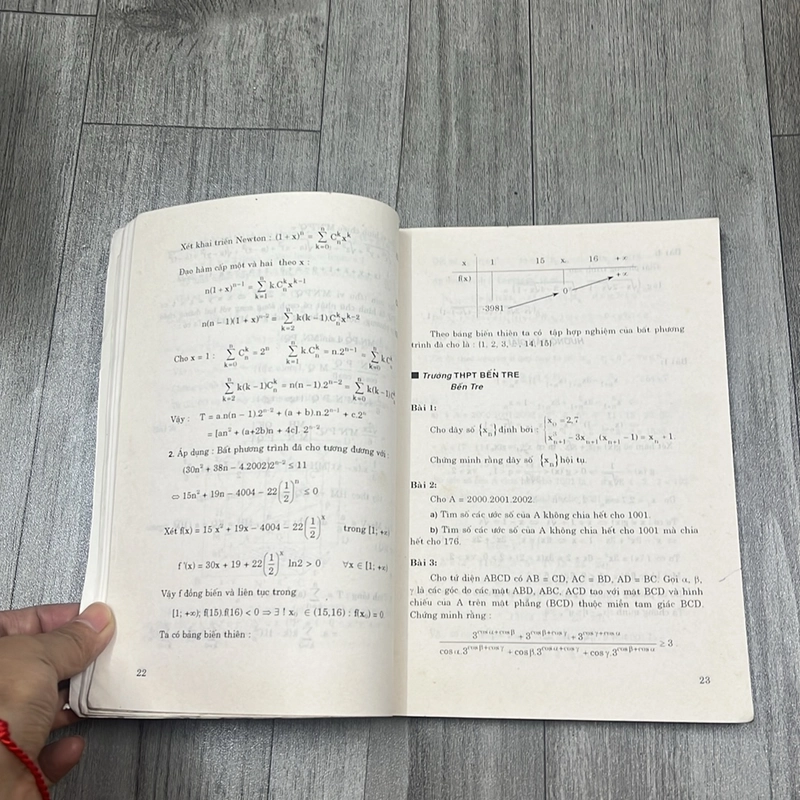 Xét khai triển Newton : (1 + x)ⁿ = ∑ₖ₌₀ⁿ Cₙᵏxᵏ
Đạo hàm cấp một và hai theo x :
n(1 + x)ⁿ⁻¹ = ∑ₖ₌₁ⁿ k.Cₙᵏxᵏ⁻¹
n(n − 1)(1 + x)ⁿ⁻² = ∑ₖ₌₂ⁿ k(k − 1).Cₙᵏxᵏ⁻²
Cho x = 1 : ∑ₖ₌₀ⁿ Cₙᵏ = 2ⁿ ∑ₖ₌₁ⁿ k.Cₙᵏ = n.2ⁿ⁻¹ = ∑ₖ₌₀ⁿ k.Cₙᵏ
∑ₖ₌₂ⁿ k(k − 1)Cₙᵏ = n(n − 1).2ⁿ⁻² = ∑ₖ₌₀ⁿ k(k − 1)
Vậy : T = a.n(n − 1).2ⁿ⁻² + (a + b).n.2ⁿ⁻¹ + c.2ⁿ
= [an² + (a+2b)n + 4c]. 2ⁿ⁻²
2. Áp dụng : Bất phương trình đã cho tương đương với :
(30n² + 38n − 4.2002)2ⁿ⁻² ≤ 11
⇔ 15n² + 19n − 4004 − 22(1/2)ⁿ ≤ 0
Xét f(x) = 15 x² + 19x − 4004 − 22(1/2)ˣ trong [1; +∞)
f '(x) = 30x + 19 + 22(1/2)ˣ ln2 > 0 ∀x ∈ [1; +∞)
Vậy f đồng biến và liên tục trong
[1; +∞); f(15).f(16) < 0 ⇒ ∃ ! x₀ ∈ (15,16) : f(x₀) = 0
Ta có bảng biến thiên :
22
x 1 15 x₀ 16 + ∞
f(x) + ∞
0
-3981
Theo bảng biến thiên ta có tập hợp nghiệm của bất phương
trình đã cho là : {1, 2, 3, ..., 14, 15}
■ Trường THPT BẾN TRE
Bến Tre
Bài 1:
Cho dãy số {xₙ} định bởi : x₀ = 2,7
x³ₙ₊₁ − 3xₙ₊₁(xₙ₊₁ − 1) = xₙ + 1
Chứng minh rằng dãy số {xₙ} hội tụ.
Bài 2:
Cho A = 2000.2001.2002
a) Tìm số các ước số của A không chia hết cho 1001.
b) Tìm số các ước số của A không chia hết cho 1001 mà chia
hết cho 176.
Bài 3:
Cho tứ diện ABCD có AB = CD, AC = BD, AD = BC. Gọi α, β,
γ là các góc do các mặt ABD, ABC, ACD tạo với mặt BCD và hình
chiếu của A trên mặt phẳng (BCD) thuộc miền tam giác BCD.
Chứng minh rằng :
3^(cos α + cos β) + 3^(cos β + cos γ) + 3^(cos γ + cos α) ≥ 3
cos α.3^(cos β + cos γ) + cos β.3^(cos α + cos γ) + cos γ.3^(cos β + cos α)
23